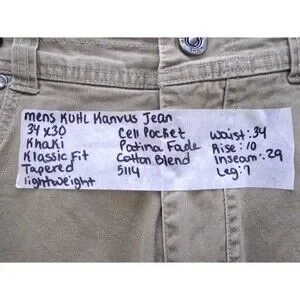 mens KUHL Kanvus Jean
34 x 30
Khaki
Klassic Fit
Tapered
lightweight
Cell Pocket
Patina Fade
Cotton Blend
5114
Waist: 34
Rise: 10
Inseam: 29
Leg: 7